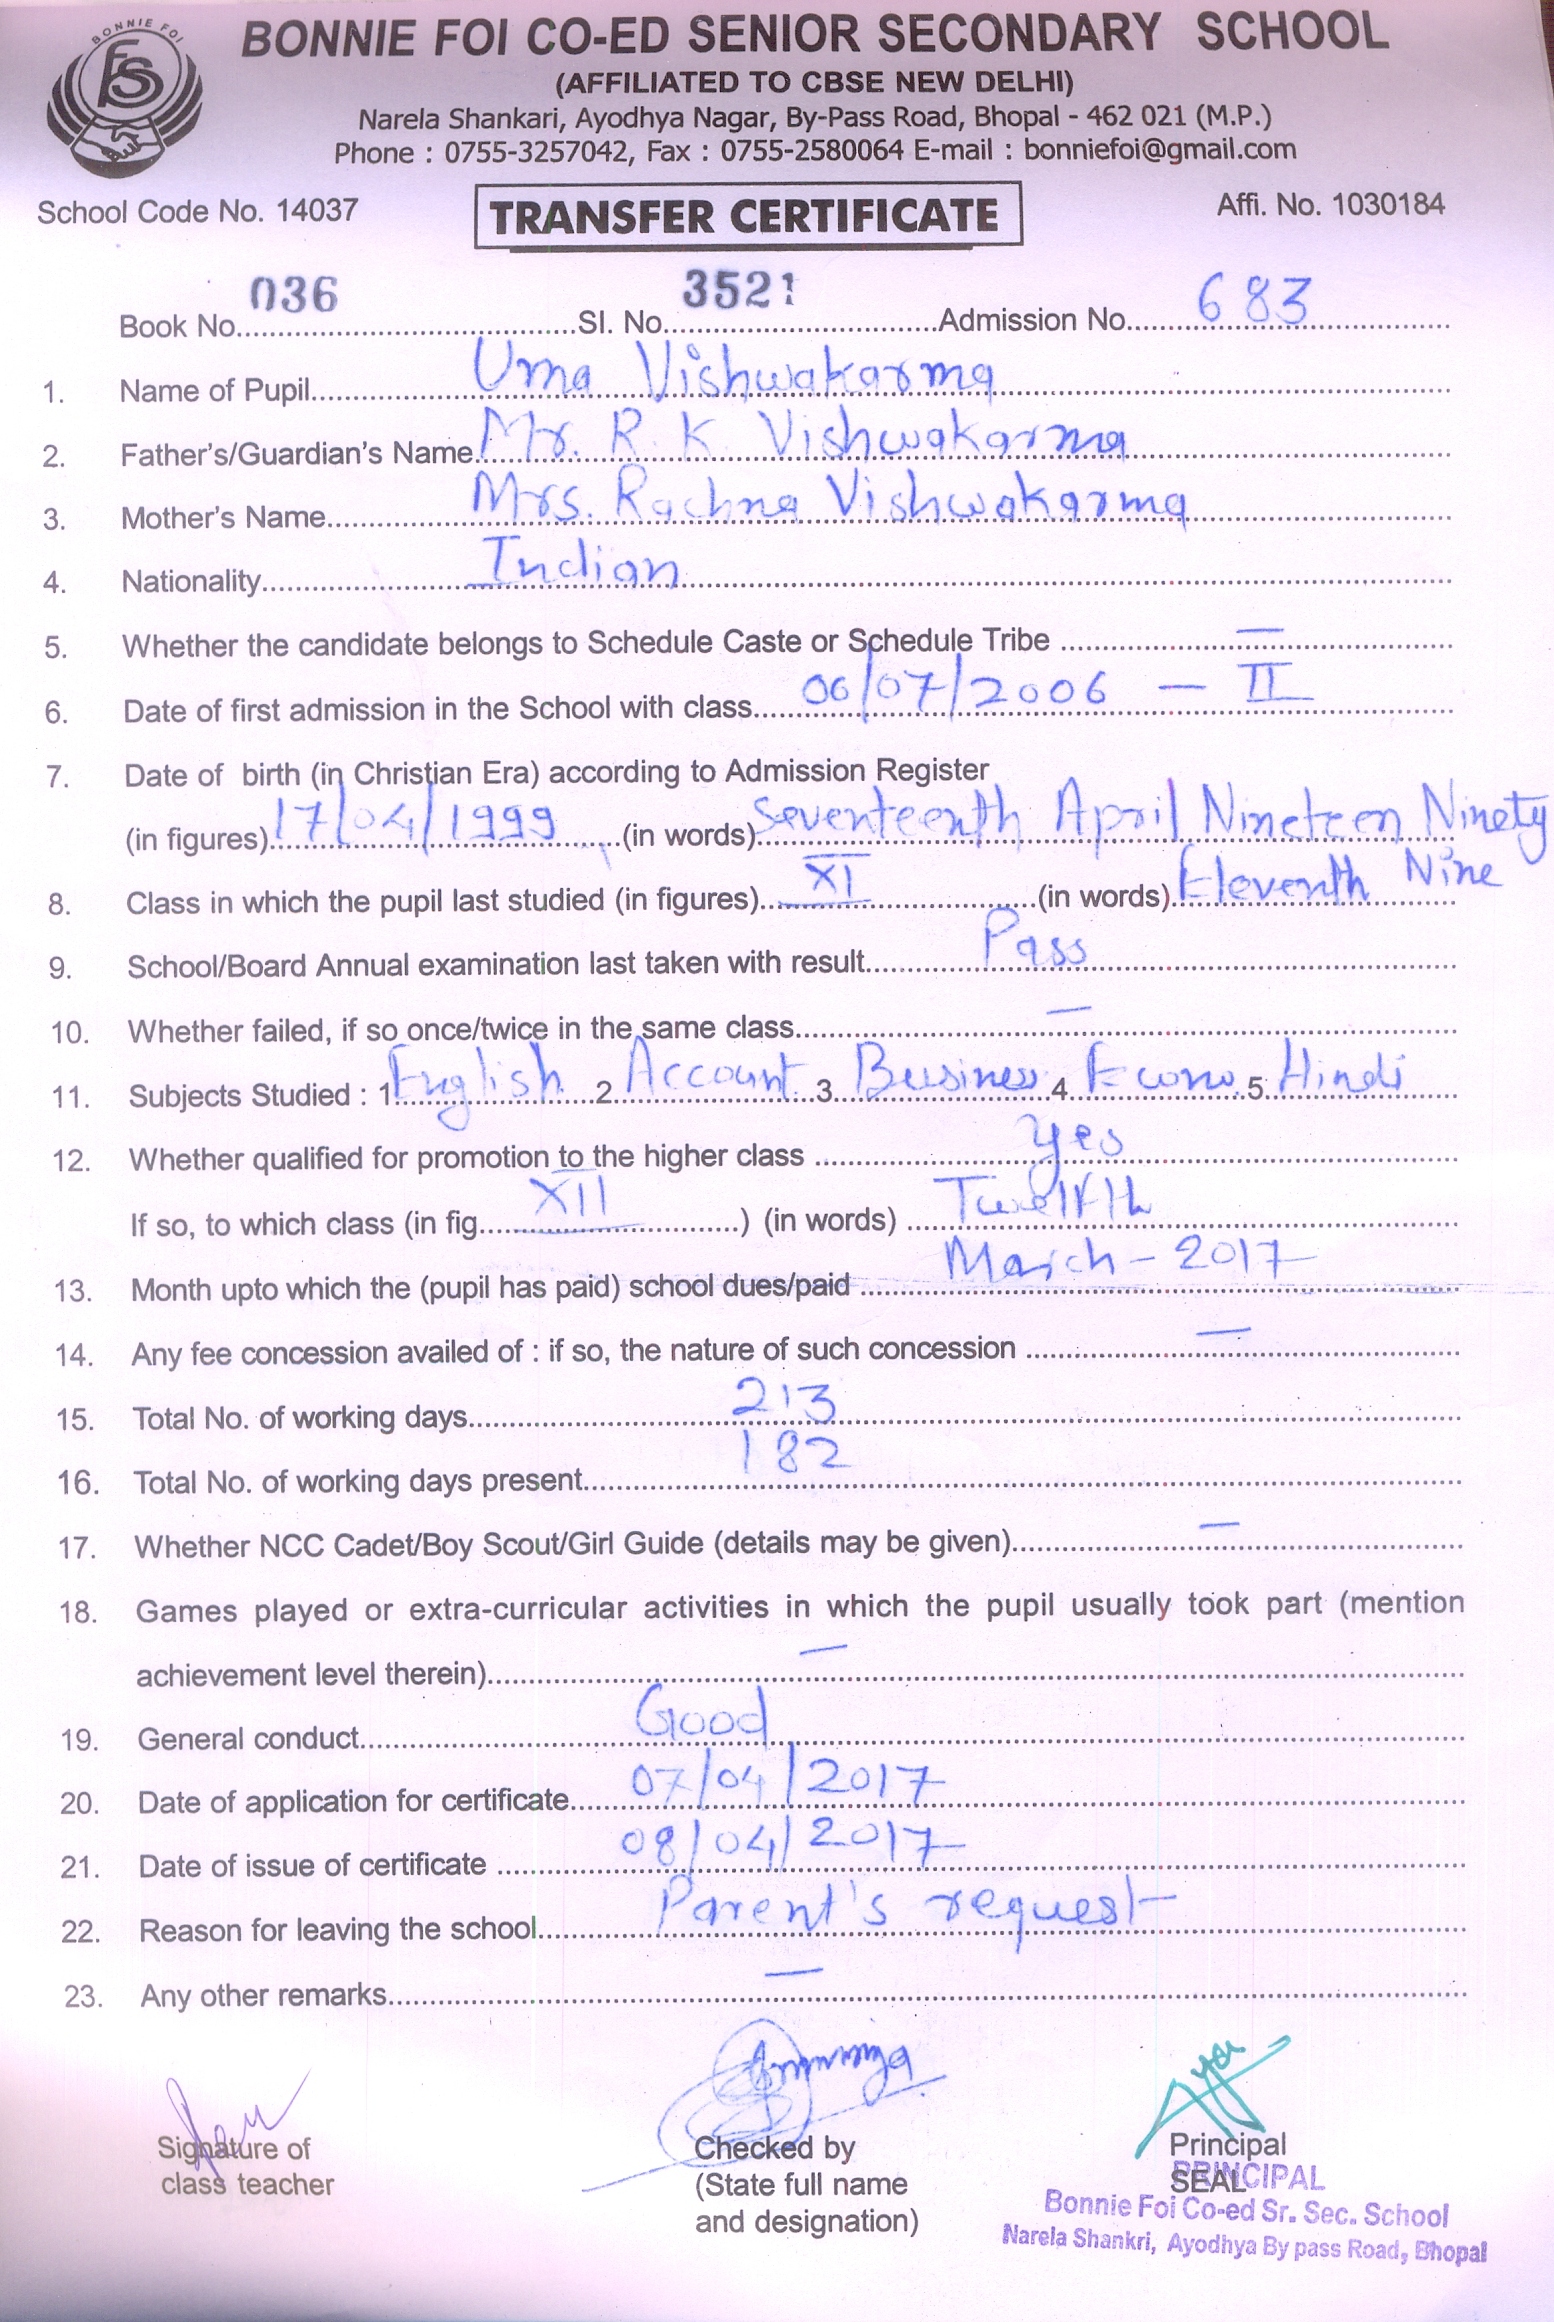 BONNIE FOI
FS
BONNIE FOI CO-ED SENIOR SECONDARY SCHOOL
(AFFILIATED TO CBSE NEW DELHI)
Narela Shankari, Ayodhya Nagar, By-Pass Road, Bhopal - 462 021 (M.P.)
Phone : 0755-3257042, Fax : 0755-2580064 E-mail : bonniefoi@gmail.com
School Code No. 14037 TRANSFER CERTIFICATE Affi. No. 1030184
Book No. 036 Sl. No. 3521 Admission No. 683
1. Name of Pupil Uma Vishwakarma
2. Father's/Guardian's Name Mr. R. K Vishwakarma
3. Mother's Name Mrs. Rachna Vishwakarma
4. Nationality Indian
5. Whether the candidate belongs to Schedule Caste or Schedule Tribe —
6. Date of first admission in the School with class 06/07/2006 — II
7. Date of birth (in Christian Era) according to Admission Register
(in figures) 17/04/1999 (in words) Seventeenth April Nineteen Ninety
Nine
8. Class in which the pupil last studied (in figures) XI (in words) Eleventh
9. School/Board Annual examination last taken with result Pass
10. Whether failed, if so once/twice in the same class —
11. Subjects Studied : 1 English 2 Account 3 Business 4 Econo. 5 Hindi
12. Whether qualified for promotion to the higher class Yes
If so, to which class (in fig. XII ) (in words) Twelfth
13. Month upto which the (pupil has paid) school dues/paid March - 2017
14. Any fee concession availed of : if so, the nature of such concession —
15. Total No. of working days 213
16. Total No. of working days present 182
17. Whether NCC Cadet/Boy Scout/Girl Guide (details may be given) —
18. Games played or extra-curricular activities in which the pupil usually took part (mention
achievement level therein) —
19. General conduct Good
20. Date of application for certificate 07/04/2017
21. Date of issue of certificate 08/04/2017
22. Reason for leaving the school Parent's request
23. Any other remarks —
Signature of
class teacher
Checked by
(State full name
and designation)
Principal
SEAL
PRINCIPAL
Bonnie Foi Co-ed Sr. Sec. School
Narela Shankri, Ayodhya By pass Road, Bhopal